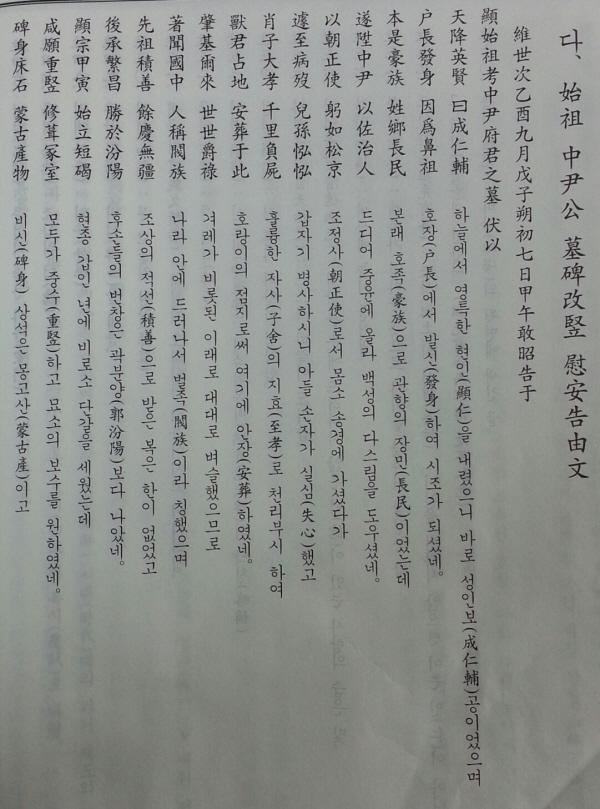 다、始祖 中尹公 墓碑改竪 慰安告由文
維世次乙酉九月戊子朔初七日甲午敢昭告于
顯始祖考中尹府君之墓 伏以
天降英賢 曰成仁輔 하늘에서 영특한 현인(顯仁)을 내렸으니 바로 성인보(成仁輔)공이었으며
户長發身 因爲鼻祖 호장(戶長)에서 발신(發身)하여 시조가 되셨네。
本是豪族 姓鄉長民 본래 호족(豪族)으로 관향의 장민(長民)이었는데
遂陞中尹 以佐治人 드디어 중윤에 올라 백성의 다스림을 도우셨네。
以朝正使 躬如松京 조정사(朝正使)로서 몸소 송경에 가셨다가
遽至病歿 兒孫泓泓 갑자기 병사하시니 아들 손자가 실심(失心)했고
肖子大孝 千里負屍 훌륭한 자사(子舍)의 지효(至孝)로 천리부시 하여
獸君占地 安葬于此 호랑이의 점지로써 여기에 안장(安葬)하였네。
肇基爾來 世世爵祿 겨레가 비롯된 이래로 대대로 벼슬했으므로
著聞國中 人稱閥族 나라 안에 드러나서 벌족(閥族)이라 칭했으며
先祖積善 餘慶無疆 조상의 적선(積善)으로 받은 복은 한이 없었고
後承繁昌 勝於汾陽 후손들의 번창은 곽분양(郭汾陽)보다 나았네。
顯宗甲寅 始立短碣 현종 갑인 년에 비로소 단갈을 세웠는데
咸願重竪 修葺冢室 모두가 중수(重竪)하고 묘소의 보수를 원하였네。
碑身床石 蒙古產物 비신(碑身) 상석은 몽고산(蒙古產)이고